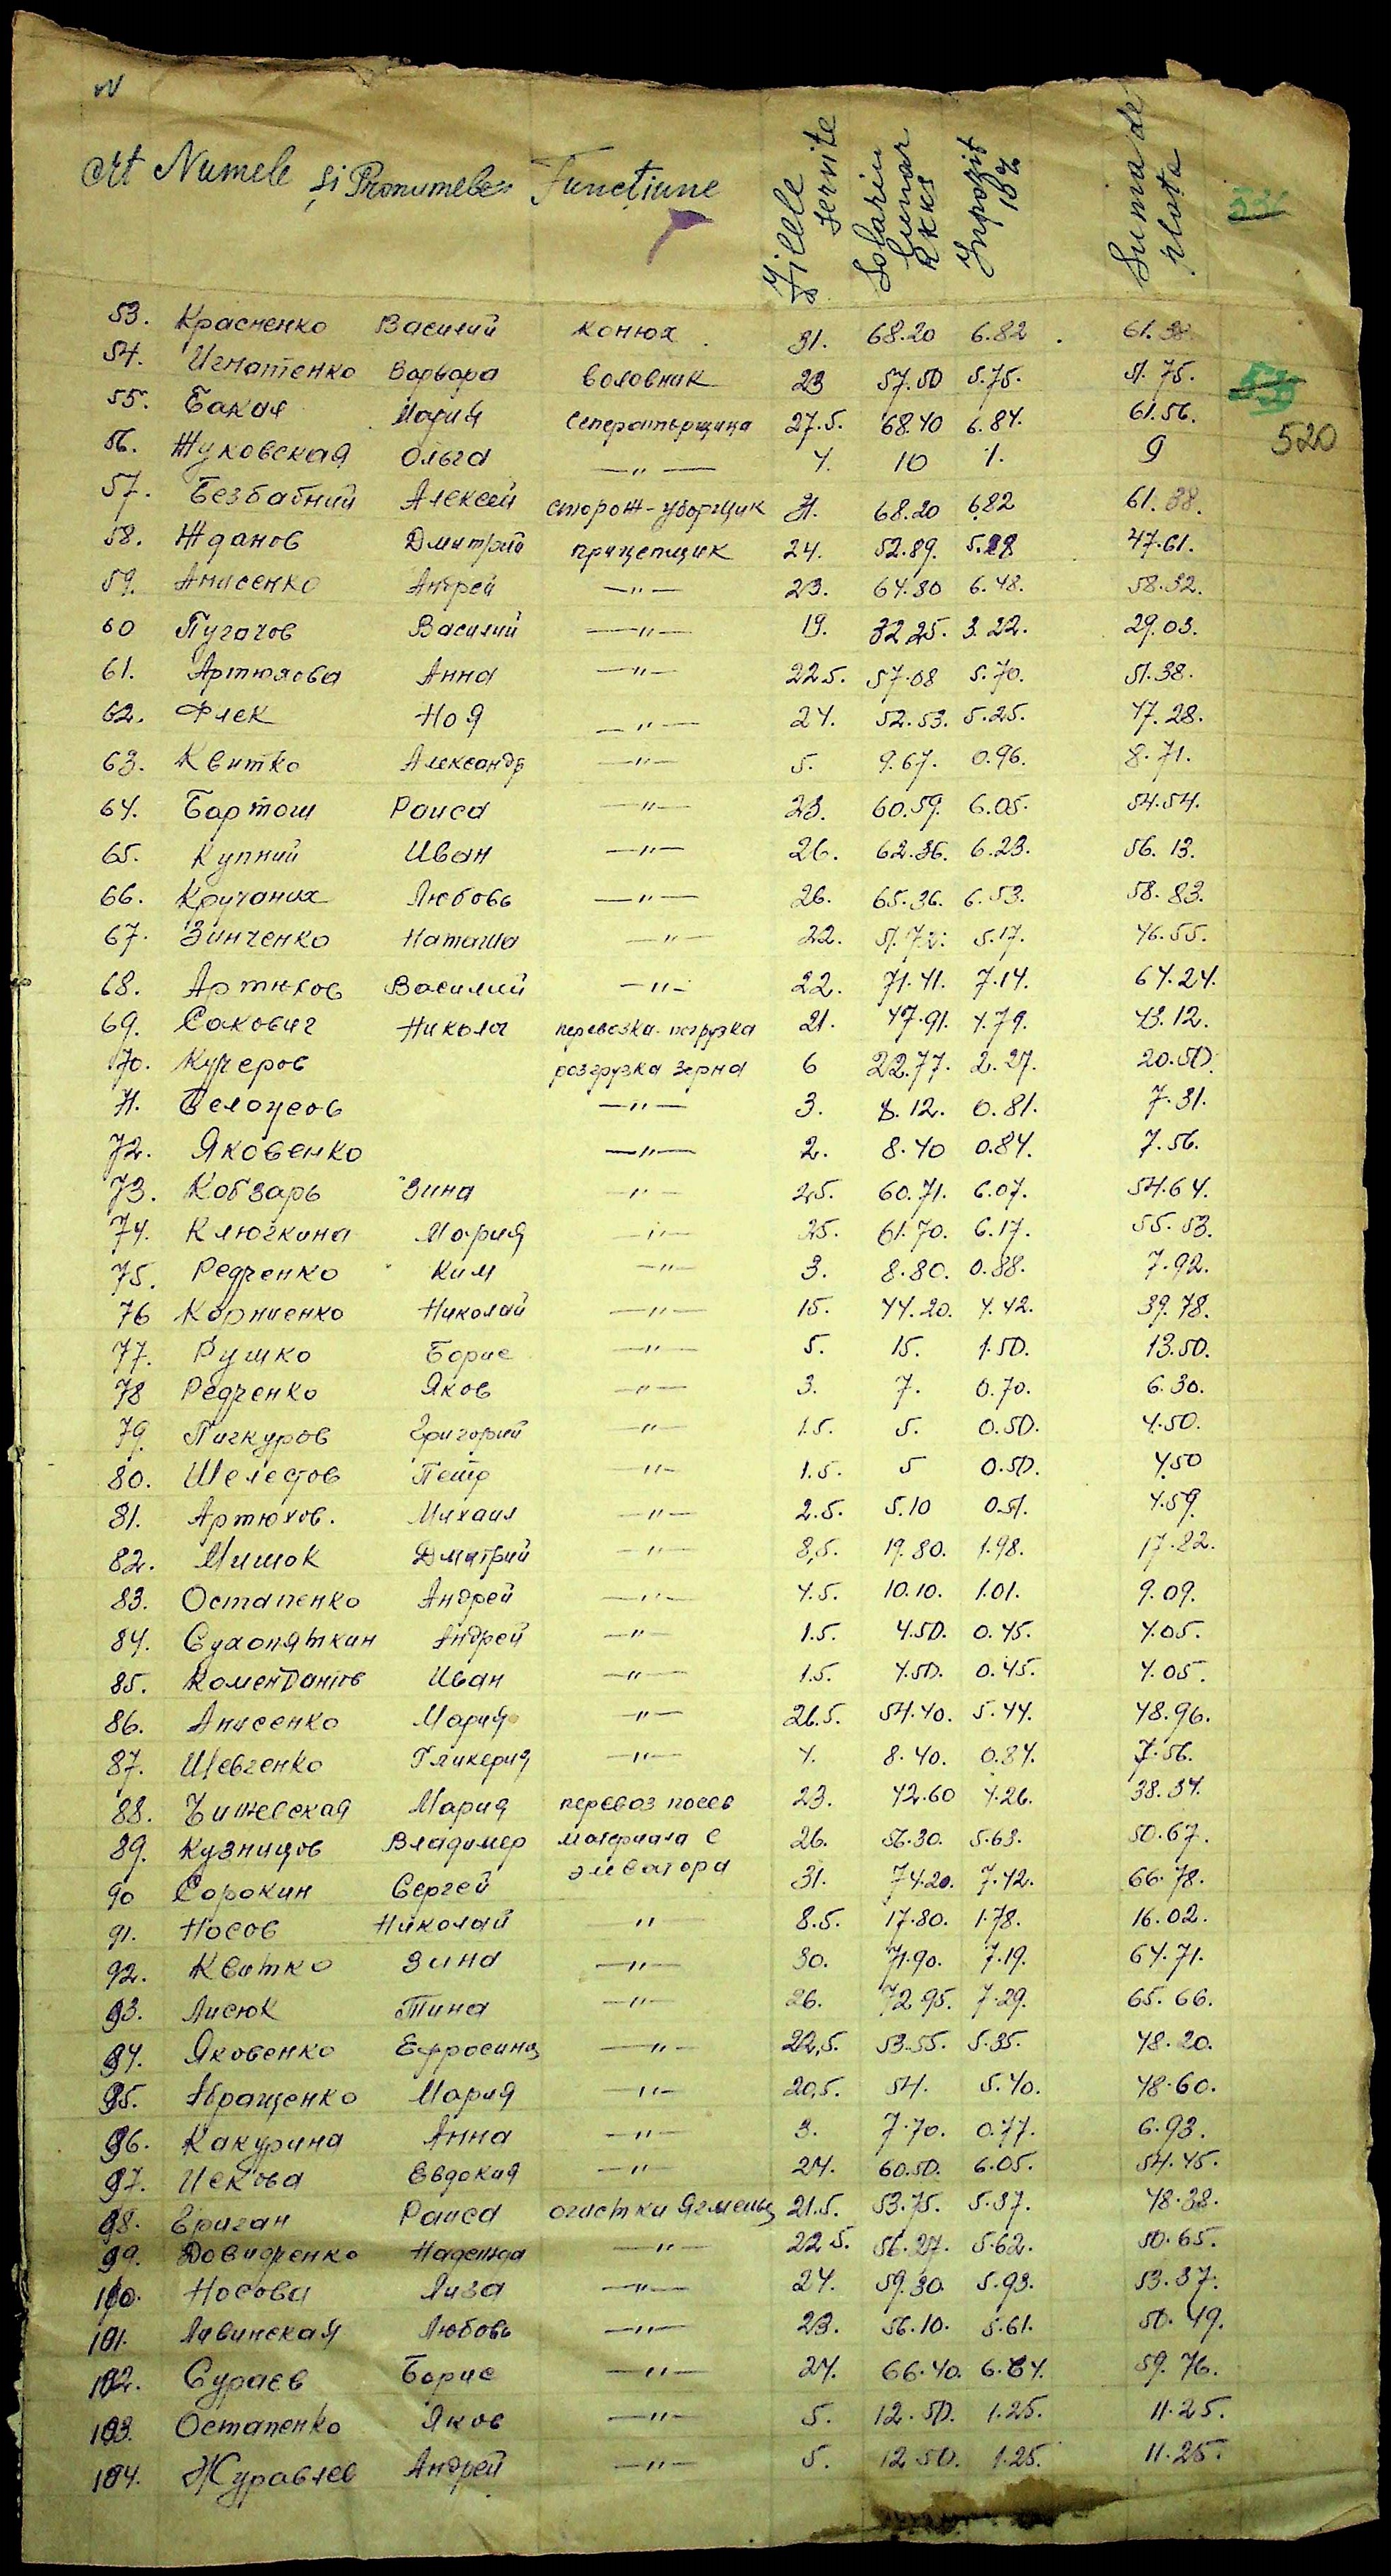 N
crt Numele și Pronumele Funcțiune Zilele servite Solariu lunar RKKS Inpozit 10% Suma de plata
53. Красненко Василий конюх 31. 68.20 6.82 61.38
54. Игнатенко Варвара воловник 23 57.50 5.75. 51.75.
55. Бакая Мария сеператорщица 27.5. 68.40 6.84. 61.56.
520
56. Жуковская Ольга —"— 4. 10 1. 9
57. Безбабний Алексей сторож-уборщик 31. 68.20 6.82 61.38.
58. Жданов Дмитрий прицепщик 24. 52.89. 5.28 47.61.
59. Анисенко Андрей —"— 23. 64.80 6.48. 58.32.
60 Пугачов Василий —"— 19. 32.25. 3.22. 29.03.
61. Артюхова Анна —"— 22.5. 57.08 5.70. 51.38.
62. Флек Ноя —"— 24. 52.53. 5.25. 47.28.
63. Квитко Александр —"— 5. 9.67. 0.96. 8.71.
64. Бартош Раиса —"— 23. 60.59. 6.05. 54.54.
65. Купний Иван —"— 26. 62.36. 6.23. 56.13.
66. Кручаних Любовь —"— 26. 65.36. 6.53. 58.83.
67. Зинченко Наташа —"— 22. 51.72. 5.17. 46.55.
68. Артюхов Василий —"— 22. 71.41. 7.14. 64.24.
69. Сакович Николаг перевозка погрузка 21. 47.91. 4.79. 43.12.
70. Кучеров розгрузка зерна 6 22.77. 2.27. 20.50.
71. Белоусов —"— 3. 8.12. 0.81. 7.31.
72. Яковенко —"— 2. 8.40 0.84. 7.56.
73. Кобзарь Зина —"— 25. 60.71. 6.07. 54.64.
74. Клюгкина Мария —"— 25. 61.70. 6.17. 55.53.
75. Редченко Ким —"— 3. 8.80. 0.88. 7.92.
76 Корниенко Николай —"— 15. 44.20. 4.42. 39.78.
77. Рушко Борис —"— 5. 15. 1.50. 13.50.
78 Редченко Яков —"— 3. 7. 0.70. 6.30.
79 Пигкуров Григорий —"— 1.5. 5. 0.50. 4.50.
80. Шелестов Петр —"— 1.5. 5 0.50. 4.50
81. Артюхов. Михаил —"— 2.5. 5.10 0.51. 4.59.
82. Мишок Дмитрий —"— 8,5. 19.80. 1.98. 17.82.
83. Остапенко Андрей —"— 4.5. 10.10. 1.01. 9.09.
84. Сухопяткин Андрей —"— 1.5. 4.50. 0.45. 4.05.
85. Комендантов Иван —"— 1.5. 4.50. 0.45. 4.05.
86. Анисенко Мария —"— 26.5. 54.40. 5.44. 48.96.
87. Шевченко Гликерия —"— 4. 8.40. 0.84. 7.56.
88. Чишевская Мария перевоз посев 23. 42.60 4.26. 38.34.
89. Кузницов Владимер материала с 26. 56.30. 5.63. 50.67.
90 Сорокин Сергей элеватора 31. 74.20. 7.42. 66.78.
91. Носов Николай " 8.5. 17.80. 1.78. 16.02.
92. Квитко Зина —"— 30. 71.90. 7.19. 64.71.
93. Лисюк Тина —"— 26. 72.95. 7.29. 65.66.
94. Яковенко Ефросиния —"— 22,5. 53.55. 5.35. 48.20.
95. Абращенко Мария —"— 20,5. 54. 5.40. 48.60.
96. Какурина Анна —"— 3. 7.70. 0.77. 6.93.
97. Искова Евдокия —"— 24. 60.50. 6.05. 54.45.
98. Ериган Раиса огистки Ягменя 21.5. 53.75. 5.37. 48.38.
99. Довидченко Надежда —"— 22.5. 56.27. 5.62. 50.65.
100. Носова Лиза —"— 24. 59.30. 5.93. 53.37.
101. Лавинская Любовь —"— 23. 56.10. 5.61. 50.49.
102. Сураев Борис —"— 24. 66.40. 6.64. 59.76.
103. Остапенко Яков —"— 5. 12.50. 1.25. 11.25.
104. Журавлев Андрей —"— 5. 12.50. 1.25. 11.25.